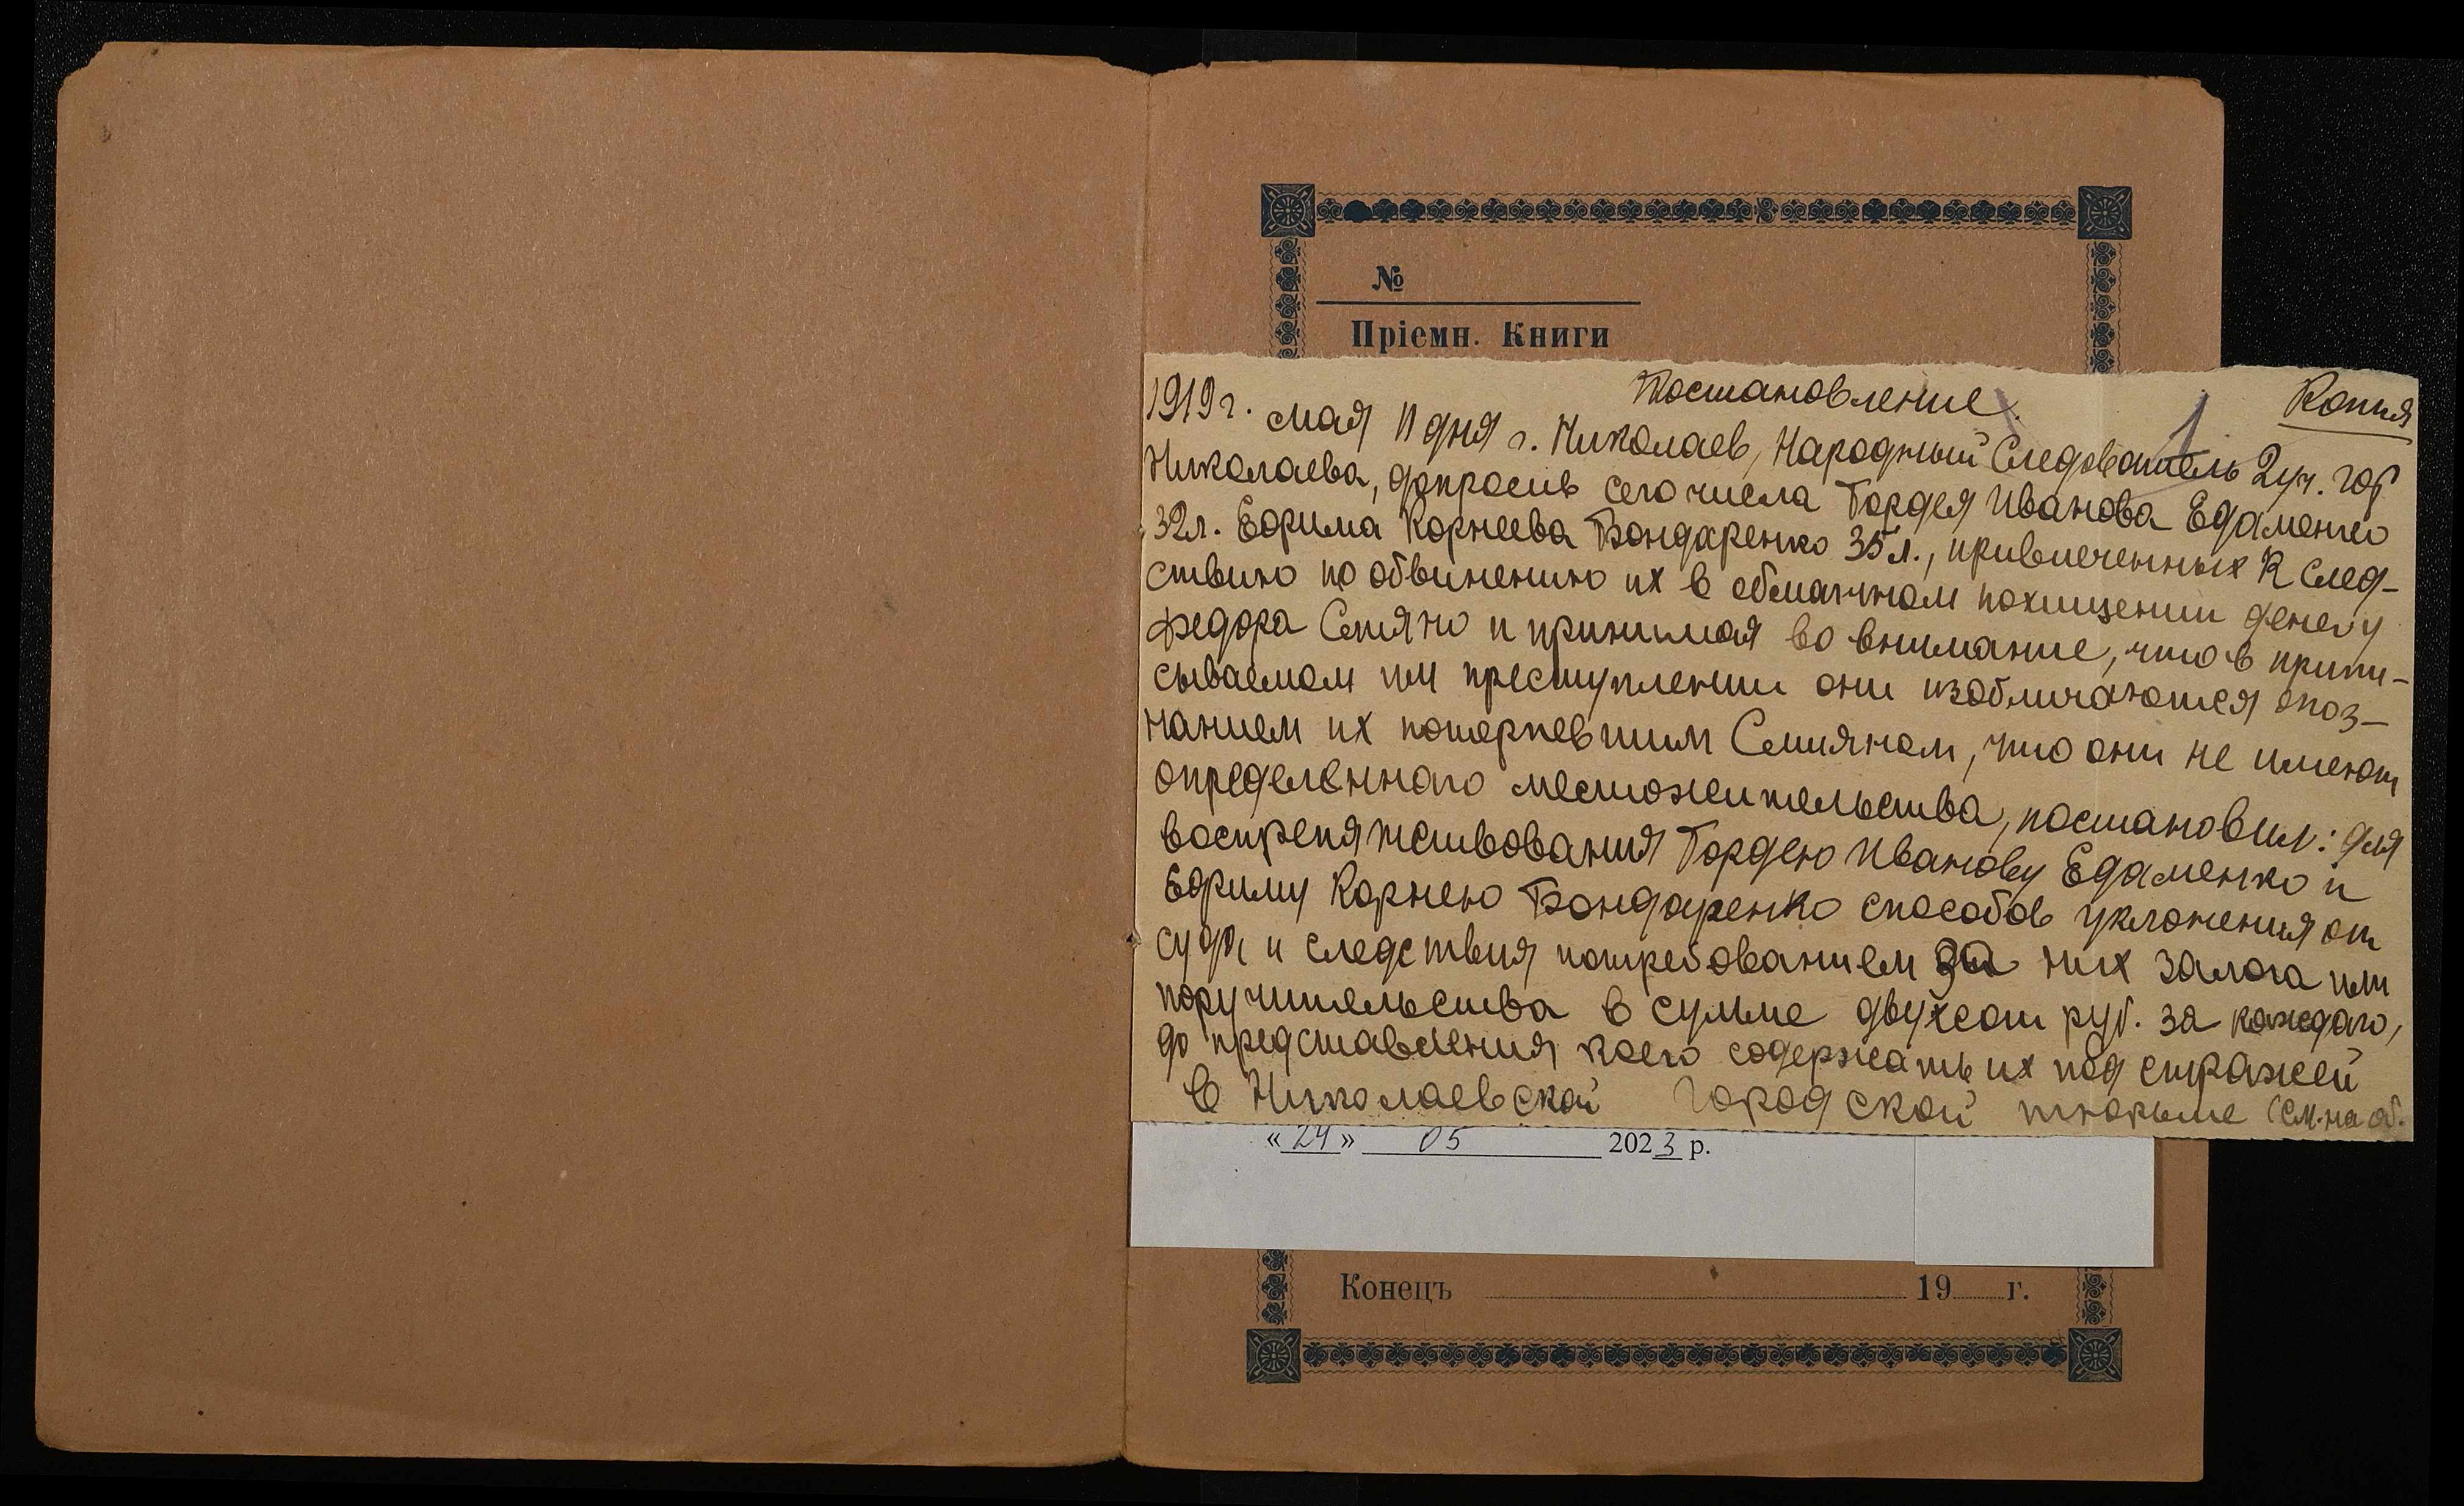 №
Пріемн. Книги
Копия
Постановление.
1
1919 г. мая 11 дня г. Николаев, Народный Следователь 2 уч. гор.
Николаева, допросив сего числа Гордея Иванова Едаменко
32 л. Ефрима Корнеева Бондаренко 35 л., привлеченных к след-
ствию по обвинению их в обманном похищении денег у
Федора Семяно и принимая во внимание, что в припи-
сываемом им преступлении они изобличаются опоз-
нанием их потерпевшим Семяном, что они не имеют
определенного местожительства, постановил: для
воспрепятствования Гордею Иванову Едаменко и
Ефриму Корнею Бондаренко способов уклонения от
суда и следствия потребованием за них залога или
поручительства в сумме двухсот руб. за каждого,
до представления коего содержать их под стражей
в Николаевской городской тюрьме (см. на об.
«24» 05 2023 р.
Конецъ 19 г.